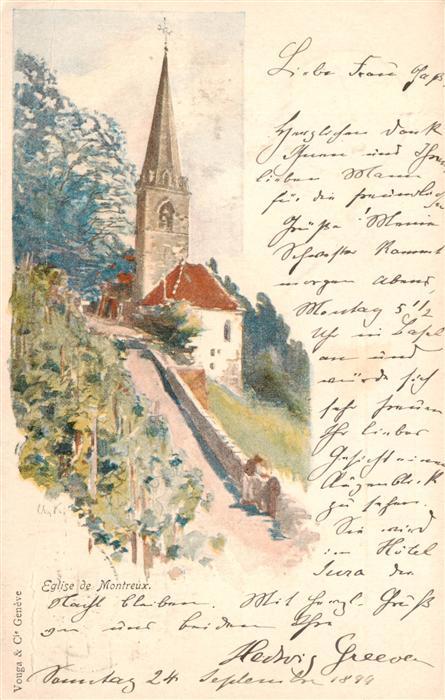 Liebe Frau
Herzlichen Dank
Ihnen und Ihrem
lieben Mann
für die freundlichen
Grüße. Meine
Schwester kommt
morgen Abend
Montag 5 1/2
Uhr in Basel
an und
würde sich
sehr freuen
Ihr liebes
Gesicht einen
Augenblick
zu sehen.
Sie wird
im Hôtel
Jura die
Eglise de Montreux.
Nacht bleiben. Mit herzl. Gruß
von uns beiden Ihre
Hedwig Greeven
Sonntag 24 September 1899
Vouga & Cie Genève